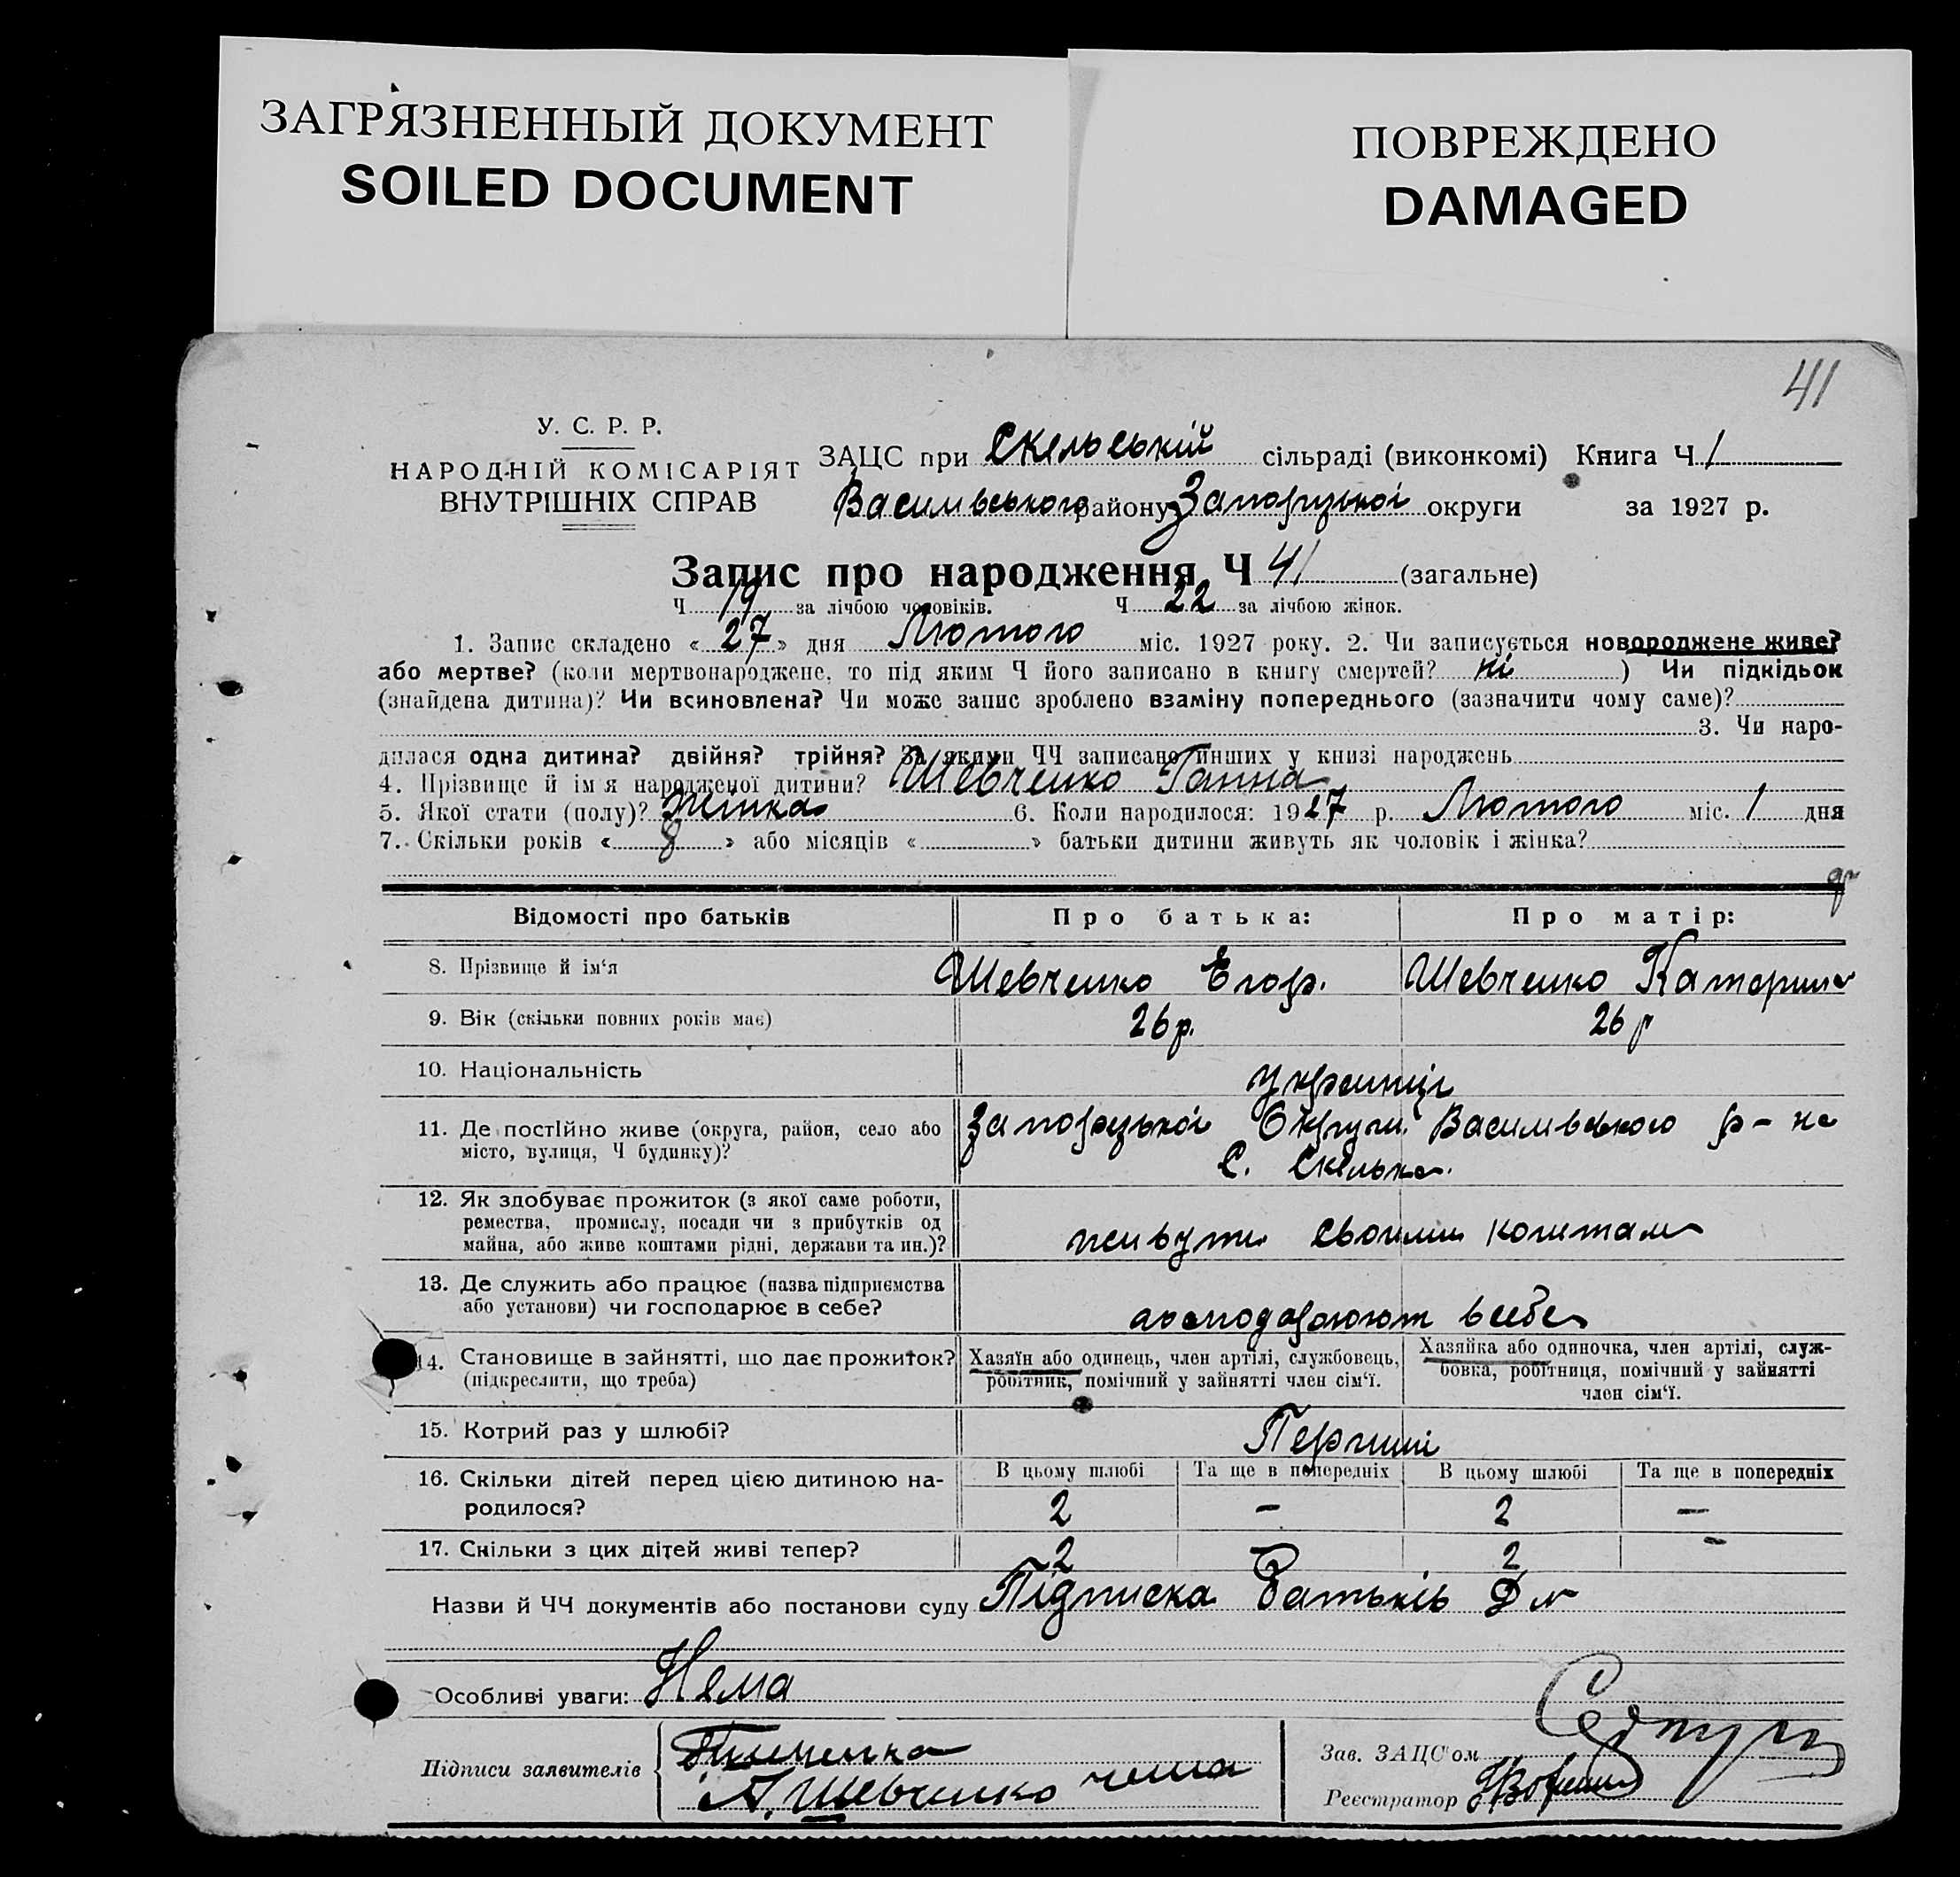 ЗАГРЯЗНЕННЫЙ ДОКУМЕНТ
SOILED DOCUMENT
ПОВРЕЖДЕНО
DAMAGED
41
У. С. Р. Р.
НАРОДНІЙ КОМІСАРІЯТ
ВНУТРІШНІХ СПРАВ
ЗАЦС при Скельській сільраді (виконкомі) Книга Ч 1
Васильвського району Запорізької округи за 1927 р.
Запис про народження Ч 41 (загальне)
Ч 19 за лічбою чоловіків. Ч 22 за лічбою жінок.
1. Запис складено « 27 » дня Лютого міс. 1927 року. 2. Чи записується новороджене живе?
або мертве? (коли мертвонароджене, то під яким Ч його записано в книгу смертей? ні ) Чи підкідьок
(знайдена дитина)? Чи всиновлена? Чи може запис зроблено взаміну попереднього (зазначити чому саме)?
3. Чи наро-
дилася одна дитина? двійня? трійня? За якими ЧЧ записано инших у книзі народжень
4. Прізвище й ім'я народженої дитини? Шевченко Ганна
5. Якої стати (полу)? жінка 6. Коли народилося: 1927 р. Лютого міс. 1 дня
7. Скільки років « 8 » або місяців « » батьки дитини живуть як чоловік і жінка?
Відомості про батьків Про батька: Про матір:
8. Прізвище й ім'я Шевченко Егор. Шевченко Катерина
9. Вік (скільки повних років має) 26 р. 26 р
10. Національність українці
11. Де постійно живе (округа, район, село або Запорізької Округи Васильвського р-на
місто, вулиця, Ч будинку)? С. Скелька.
12. Як здобуває прожиток (з якої саме роботи,
ремества, промислу, посади чи з прибутків од
майна, або живе коштами рідні, держави та ин.)? живуть своіми коштами
13. Де служить або працює (назва підприємства
або установи) чи господарює в себе? господарюют в себе
14. Становище в зайнятті, що дає прожиток? Хазяїн або одинець, член артілі, службовець, Хазяйка або одиночка, член артілі, служ-
(підкреслити, що треба) робітник, помічний у зайнятті член сім'ї. бовка, робітниця, помічний у зайнятті
член сім'ї.
15. Котрий раз у шлюбі? Перший
16. Скільки дітей перед цією дитиною на- В цьому шлюбі Та ще в попередніх В цьому шлюбі Та ще в попередніх
родилося? 2 - 2 -
17. Скільки з цих дітей живі тепер? 2 2 -
Назви й ЧЧ документів або постанови суду Підписка батьків
Особливі уваги: Нема
Підписи заявителів
Шевченко
Зав. ЗАЦС'ом
Реєстратор